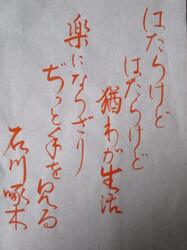 はたらけど
はたらけど
猶わが生活
楽にならざり
ぢっと手を見る
石川啄木